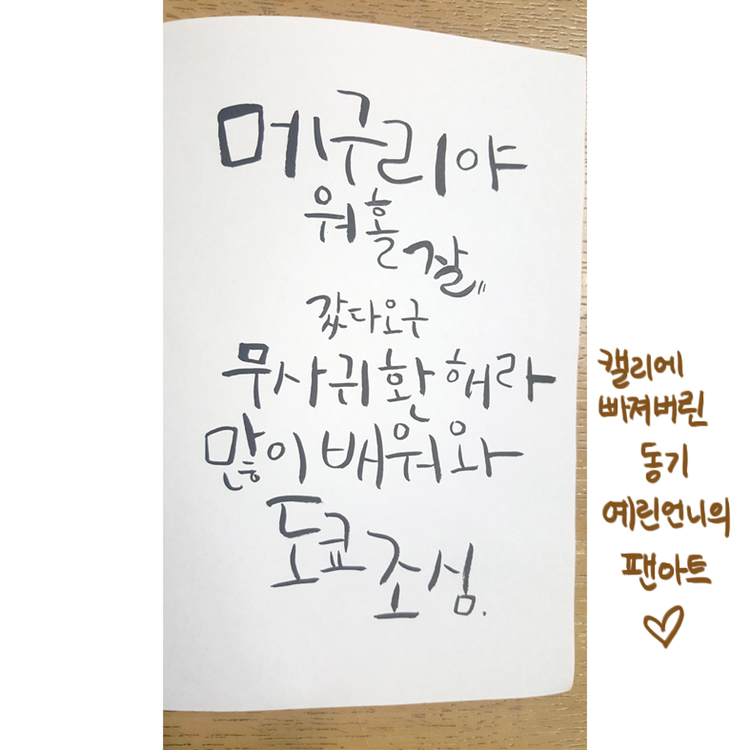 메구리야
워홀 잘"
갔다오구
무사귀환해라
많이 배워와
도쿄 조심.
캘리에
빠져버린
동기
예린언니의
팬아트
♡